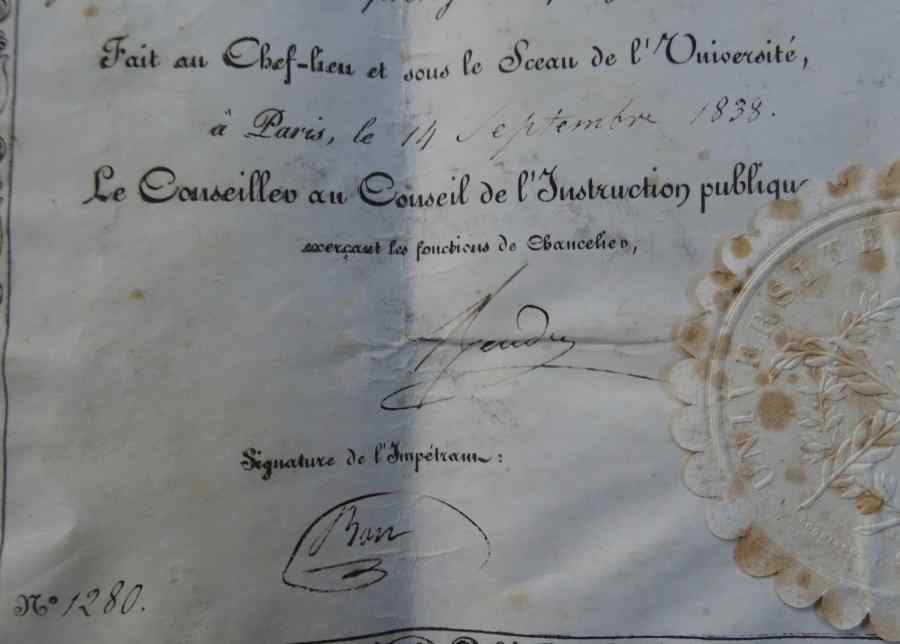 Fait au Chef-lieu et sous le Sceau de l'Université,
à Paris, le 14 Septembre 1838.
Le Conseiller au Conseil de l'Instruction publiqu
exerçant les fonctions de Chancelier,
UNIVERSITE
Signature de l'Impétrant :
N° 1280.